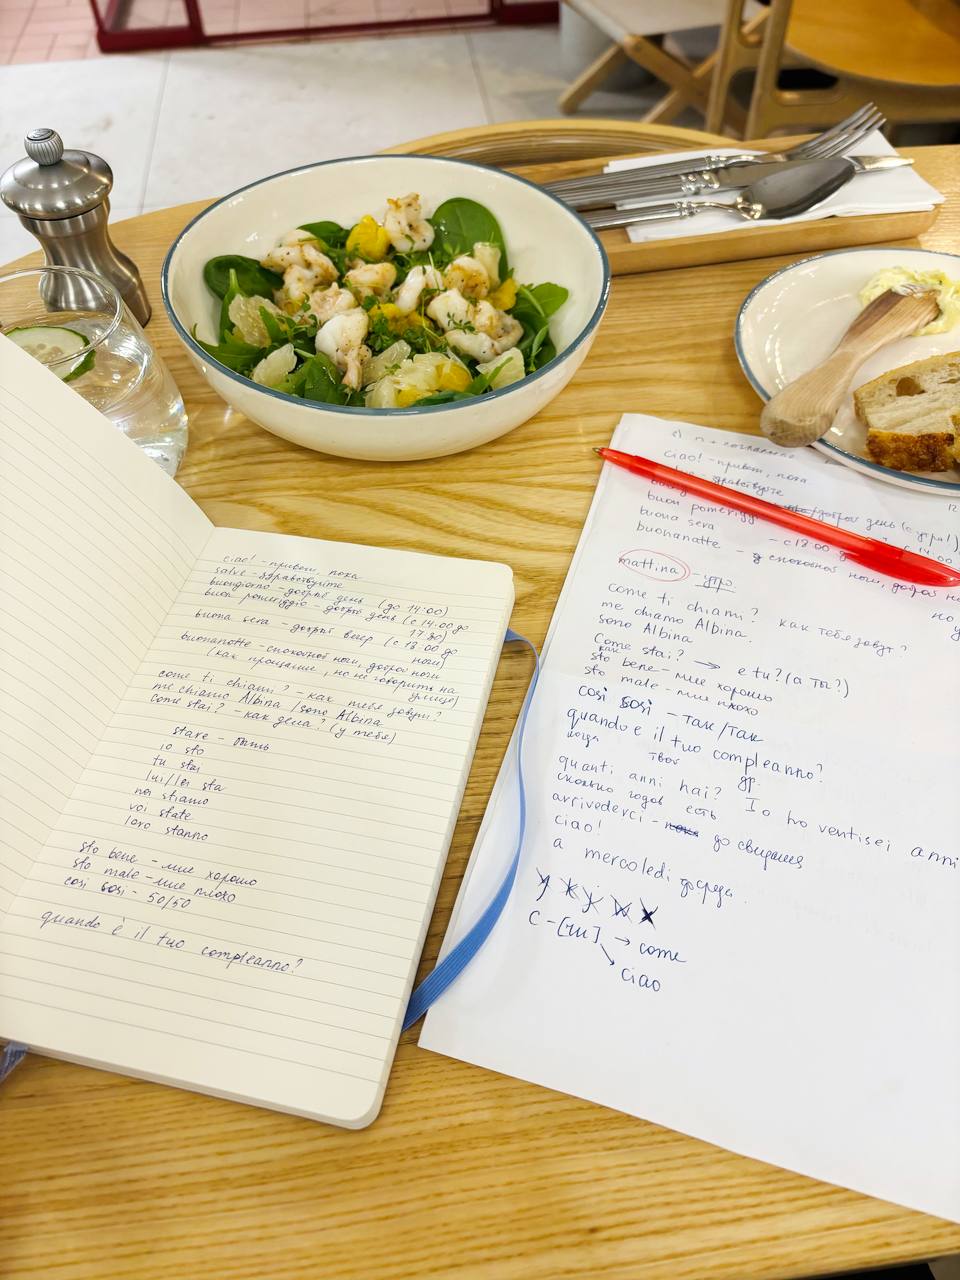 ciao! - привет, пока
salve - здравствуйте
buongiorno - добрый день (до 14:00)
buon pomeriggio - добрый день (с 14.00 до
17:30)
buona sera - добрый вечер (с 18:00 до
ночи)
buonanotte - спокойной ночи, доброй ночи
(как прощание, но не говорить на
улице)
come ti chiami? - как тебя зовут?
me chiamo Albina / sono Albina
come stai? - как дела? (у тебя)
stare - быть
io sto
tu stai
lui/lei sta
noi stiamo
voi state
loro stanno
sto bene - мне хорошо
sto male - мне плохо
così così - 50/50
quando è il tuo compleanno?
n + согласные
ciao! - привет, пока
здравствуйте
buon pomerigg добрый день (с
buona sera - с 18.00
buonanatte - спокойной ночи, доброй
mattina - утро
come ti chiami? как тебя зовут?
me chiamo Albina.
sono Albina
Come stai? → e tu? (а ты?)
как
sto bene - мне хорошо
sto male - мне плохо
così così - так/так
quando e il tuo compleanno?
когда твой др.
quanti anni hai? Io ho ventisei anni
сколько годов есть
arrivederci - до свидания
ciao!
a mercoledì до среда.
y k j w x
c - [чи] → come
ciao